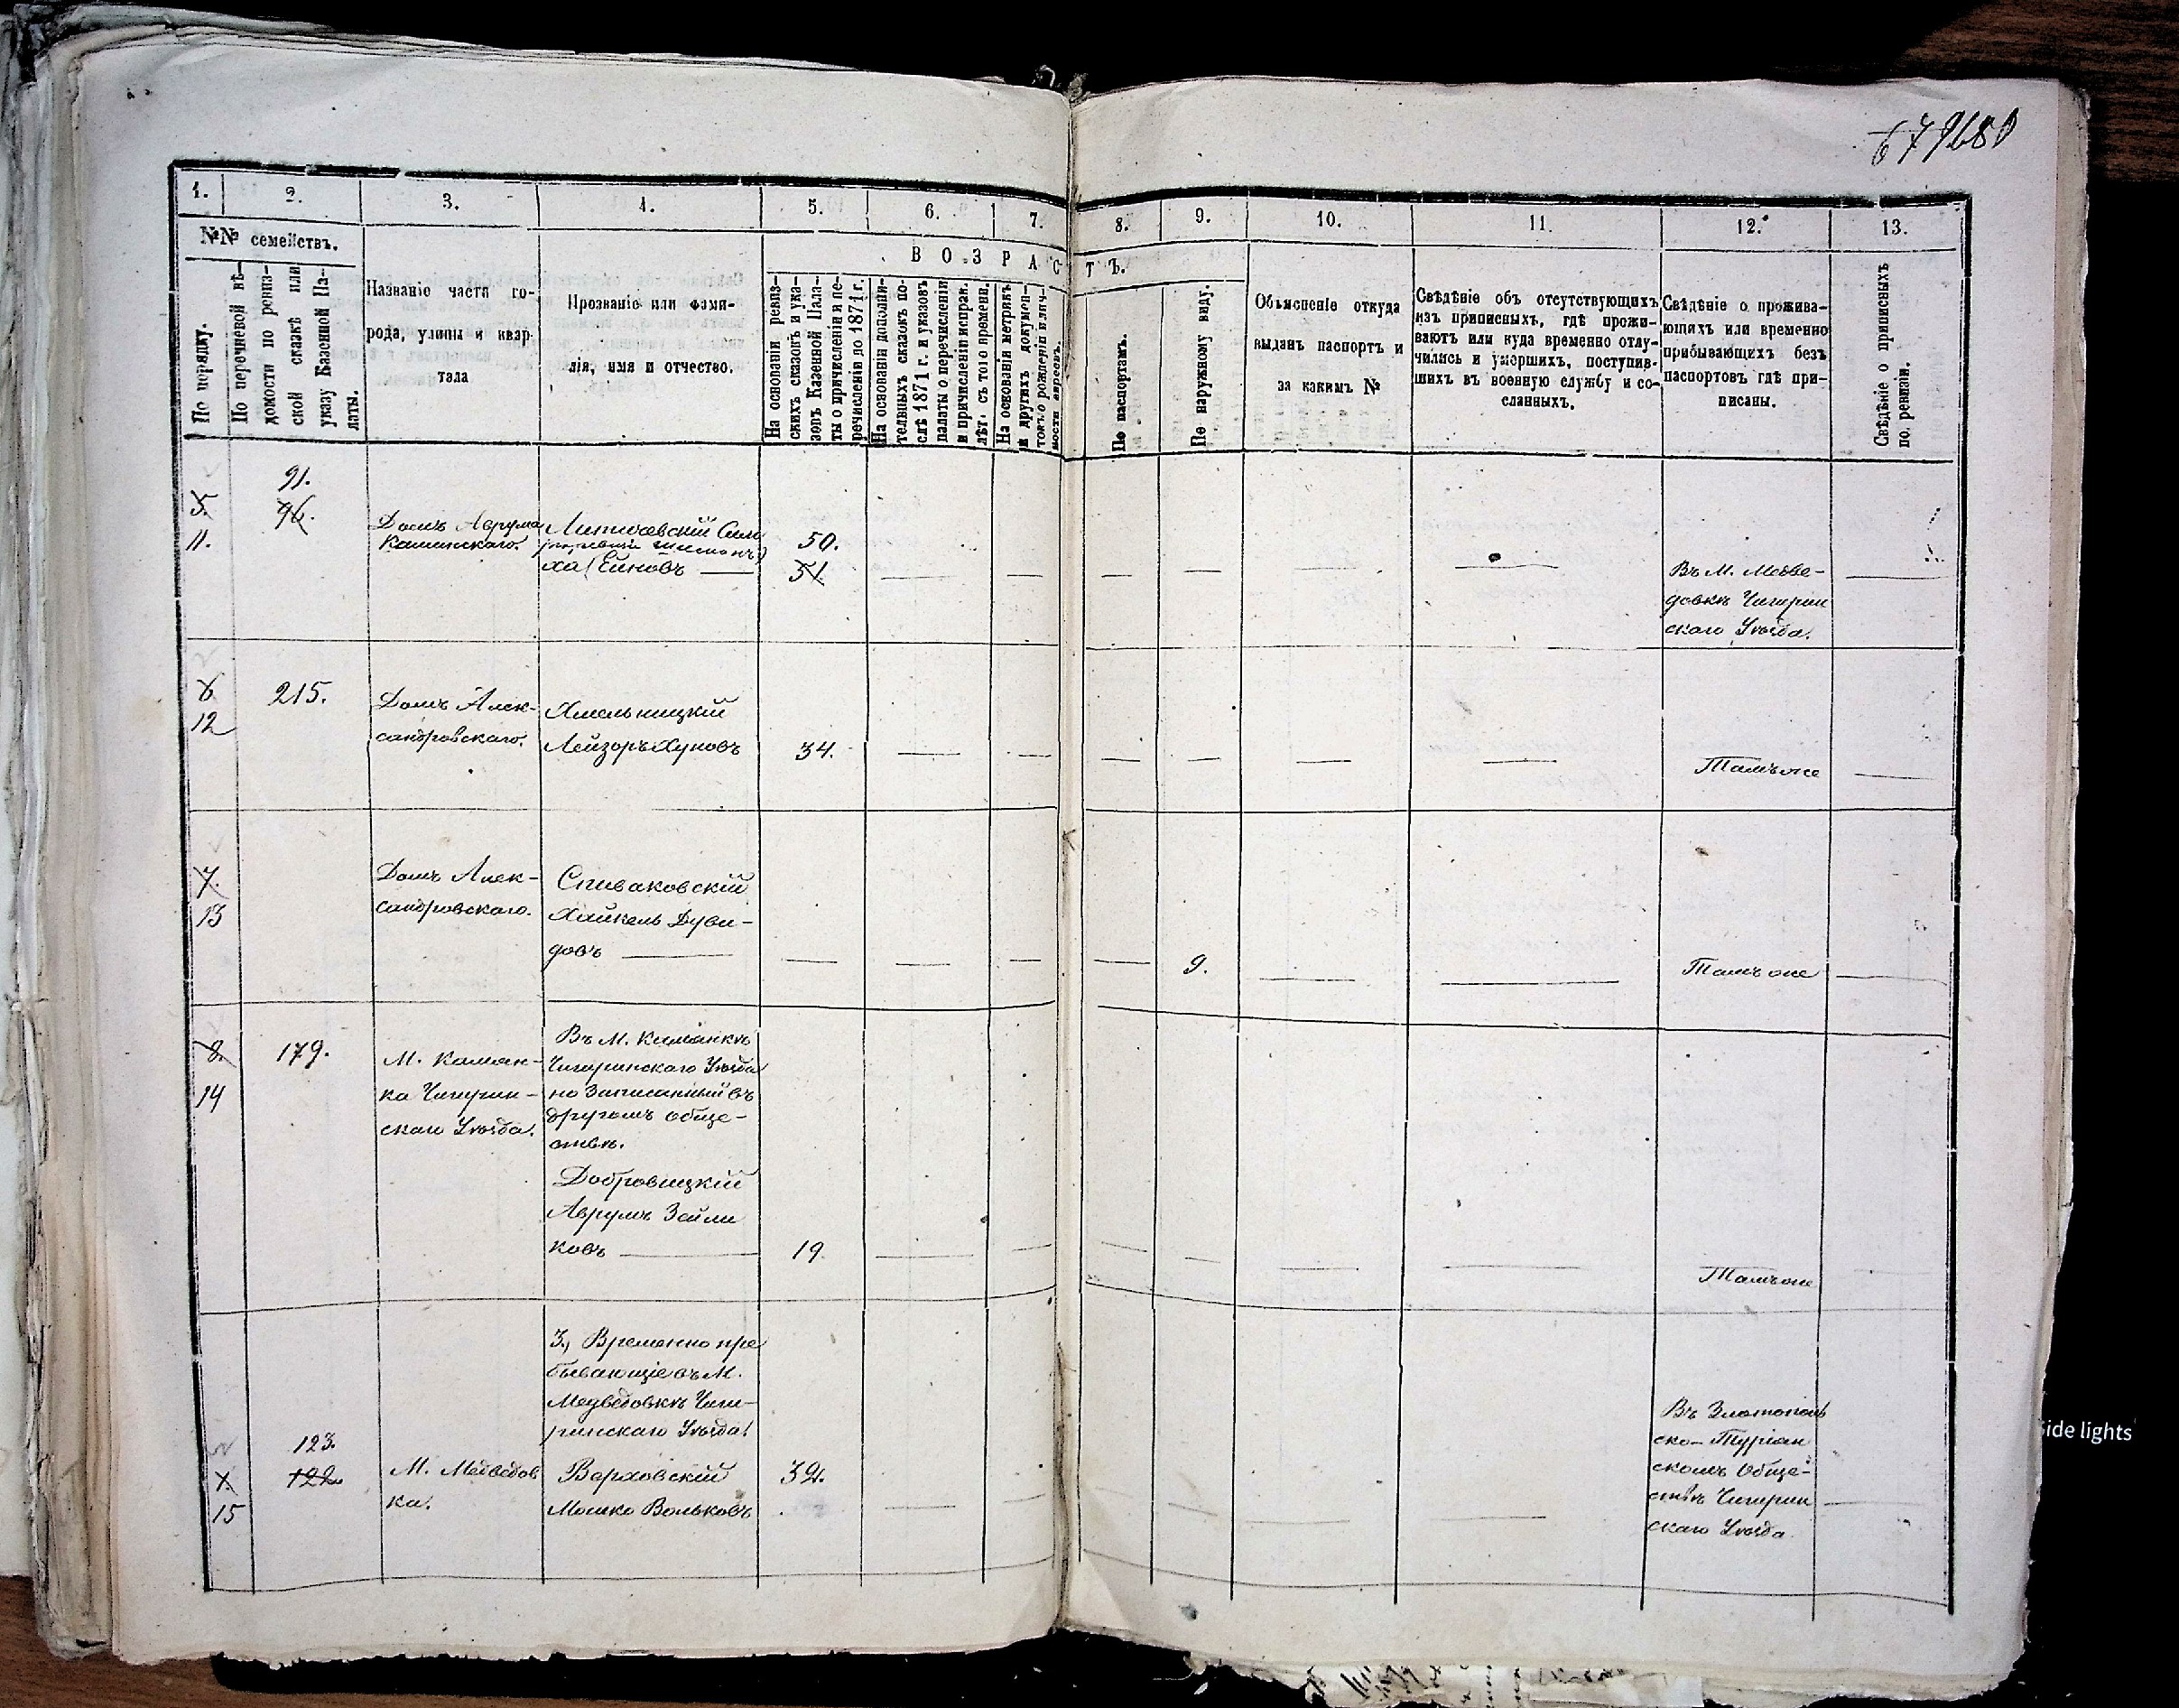 679680
1. 2. 3. 4. 5. 6. 7. 8. 9. 10. 11. 12. 13.
№№ семействъ.
По порядку.
По перечневой вѣ-
домости по ревиз-
ской сказкѣ или
указу Казенной Па-
латы.
Названіе части го-
рода, улицы и квар
тала
Прозваніе или фами-
лія, имя и отчество.
ВОЗРАСТЪ.
На основаніи ревиз-
скихъ сказокъ и ука-
зовъ Казенной Пала-
ты о причисленіи и пе-
речисленіи до 1871 г.
На основаніи дополни-
тельныхъ сказокъ по-
слѣ 1871 г. и указовъ
палаты о перечисленіи
и причисленіи исправ.
лѣт. съ того времени.
На основаніи метрикъ
и другихъ докумен-
товъ о рожденіи илич-
ности евреевъ.
По паспортамъ.
По наружному виду.
Объясненіе откуда
выданъ паспортъ и
за какимъ №
Свѣдѣніе объ отсутствующихъ
изъ приписныхъ, гдѣ прожи-
ваютъ или куда временно отлу-
чились и умершихъ, поступив-
шихъ въ военную службу и со-
сланныхъ.
Свѣдѣніе о прожива-
ющихъ или временно
прибывающихъ безъ
паспортовъ гдѣ при-
писаны.
Свѣдѣніе о приписныхъ
по ревизіи.
5.
11.
91.
96.
Домъ Аврума
Каминскаго.
ха Ейновъ
50.
51.
Въ М. Медве-
довкѣ Чигирин
скаго Уѣзда.
6
12
215.
Домъ Алек-
сандровскаго.
Хмельницкій
Лейзоръ Хуновъ
34.
Тамъ же
7.
13
Домъ Алек-
сандровскаго.
Спиваковскій
Хайкель Дуви-
довъ
9.
Тамъ же
8.
14
179.
М. Каман-
ка Чигирин-
скаго Уѣзда.
Въ М. Каманкѣ
Чигиринскаго Уѣзда
но Записанный въ
другомъ обще-
ствѣ.
Добровицкій
Аврумъ Зейли
ковъ
19
Тамъ же
3., Временно пре
бывающіе въ М.
Медведовкѣ Чиги-
ринскаго Уѣзда.
1.
15
123.
122.
М. Медведов
ка.
Верховскій
Мошко Вольковъ
32.
Въ Златополь
ско-Туріан
скомъ Обще-
ствѣ Чигирин
скаго Уѣзда.
ide lights